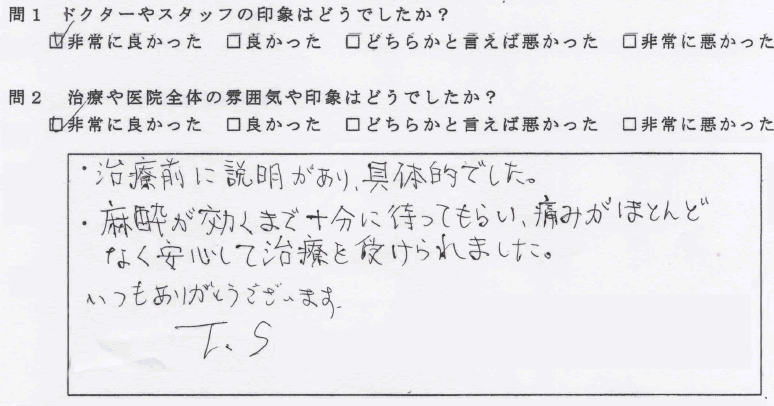 問1 ドクターやスタッフの印象はどうでしたか？
☑非常に良かった □良かった □どちらかと言えば悪かった □非常に悪かった
問2 治療や医院全体の雰囲気や印象はどうでしたか？
☑非常に良かった □良かった □どちらかと言えば悪かった □非常に悪かった
・治療前に説明があり、具体的でした。
・麻酔が効くまで十分に待ってもらい、痛みがほとんど
なく安心して治療を受けられました。
いつもありがとうございます。
T.S